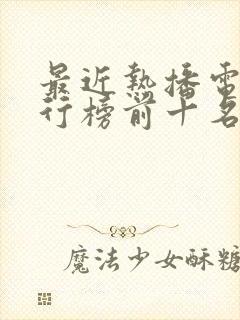 最近熱播電
行榜前十名
魔法少女酥糖